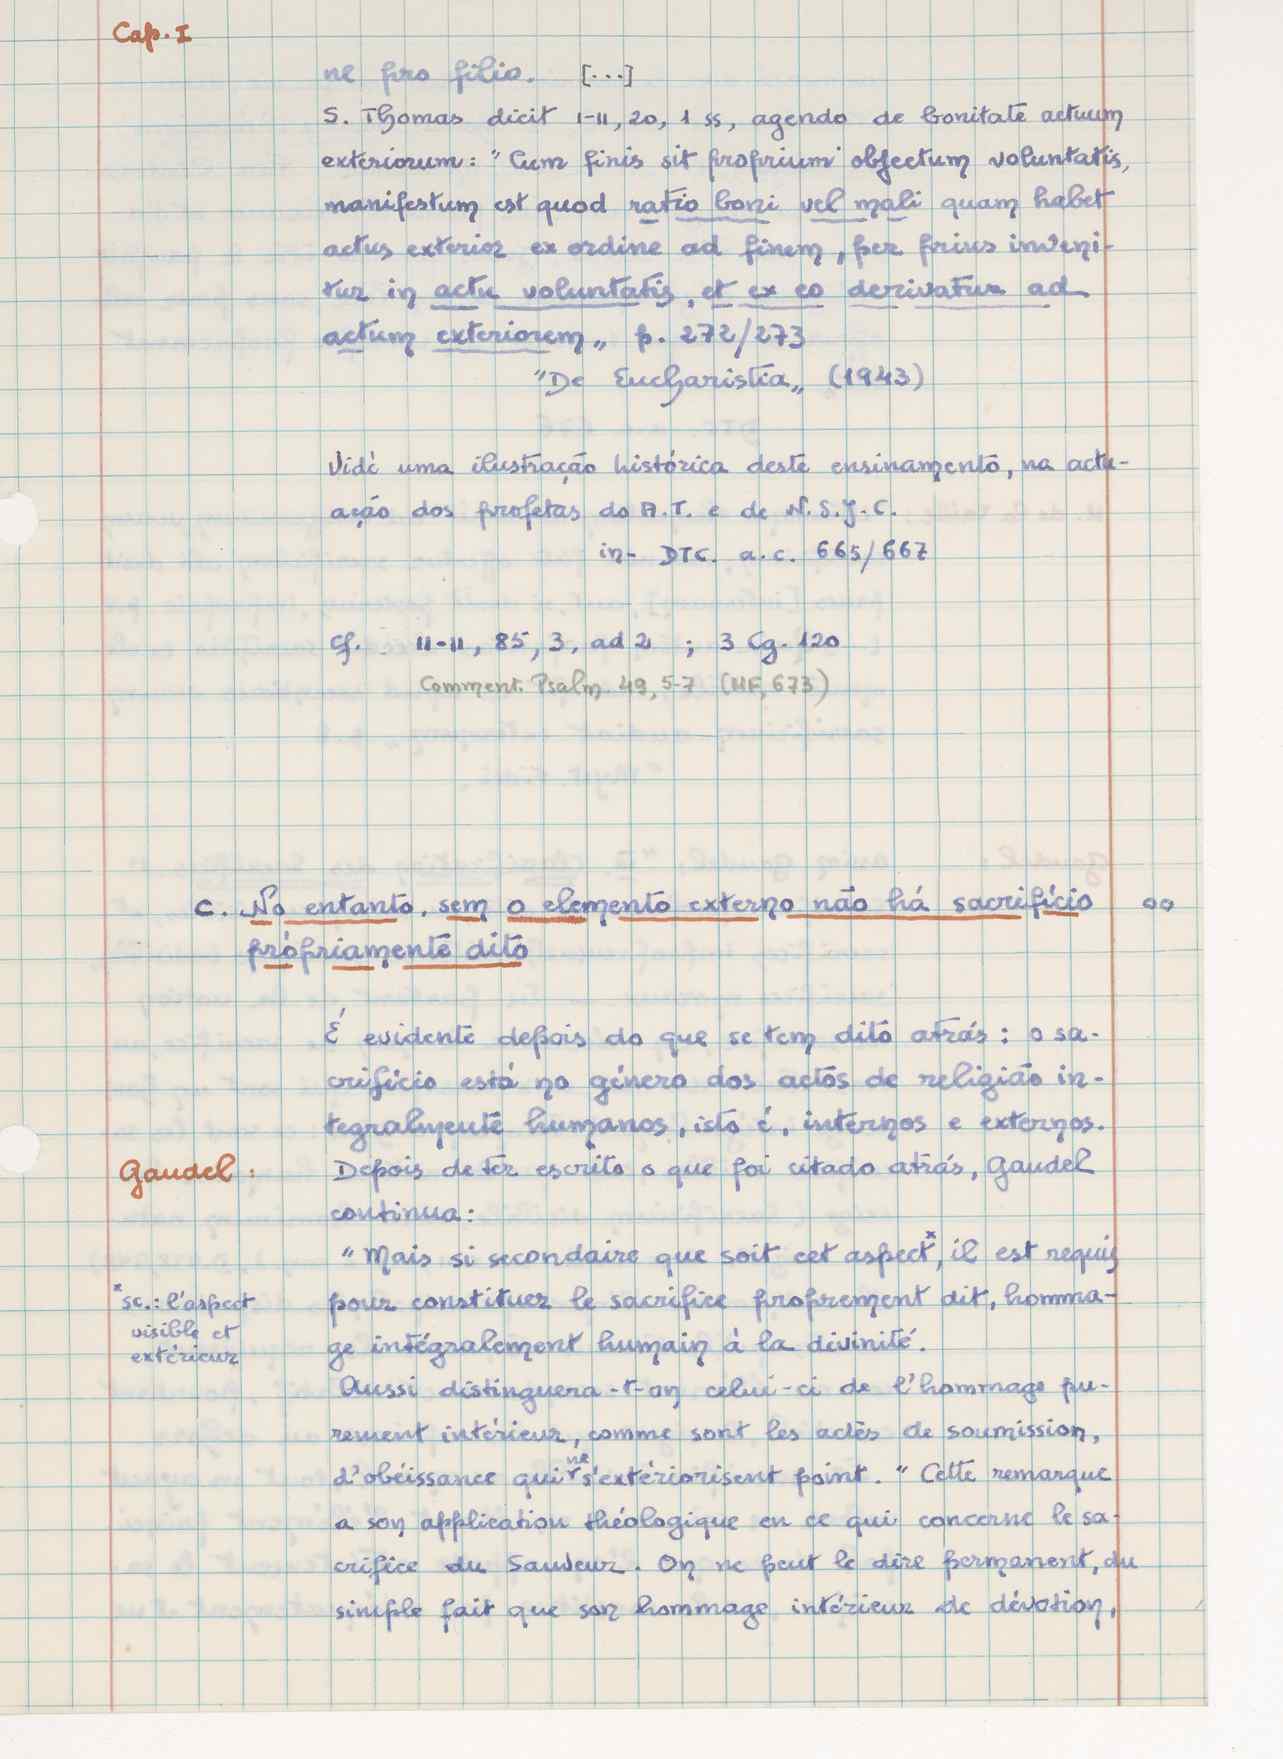 Cap. I
ne pro filio. [...]
S. Thomas dicit I-II, 20, 1 ss, agendo de bonitate actuum
exteriorum: "Cum finis sit proprium objectum voluntatis,
manifestum est quod ratio boni vel mali quam habet
actus exterior ex ordine ad finem, per prius inveni-
tur in actu voluntatis, et ex eo derivatur ad
actum exteriorem„ p. 272/273
"De Eucharistia„ (1943)
Vidé uma ilustração histórica deste ensinamento, na actu-
ação dos profetas do A.T. e de N.S.J.C.
in- DTC. a.c. 665/667
Cf. II-II, 85, 3, ad 2 ; 3 Cg. 120
Comment. Psalm. 49, 5-7 (MF, 673)
C. No entanto, sem o elemento externo não há sacrifício
própriamente dito
É evidente depois do que se tem dito atrás: o sa-
crifício está no género dos actos de religião in-
tegralmente humanos, isto é, internos e externos.
Gaudel: Depois de ter escrito o que foi citado atrás, Gaudel
continua:
"Mais si secondaire que soit cet aspect*, il est requis
pour constituer le sacrifice proprement dit, homma-
ge intégralement humain à la divinité.
* sc.: l'aspect
visible et
extérieur
Aussi distinguera-t-on celui-ci de l'hommage pu-
rement intérieur, comme sont les actes de soumission,
d'obéissance qui ne s'extériorisent point. "Cette remarque
a son application théologique en ce qui concerne le sa-
crifice du Sauveur. On ne peut le dire permanent, du
simple fait que son hommage intérieur de dévotion,